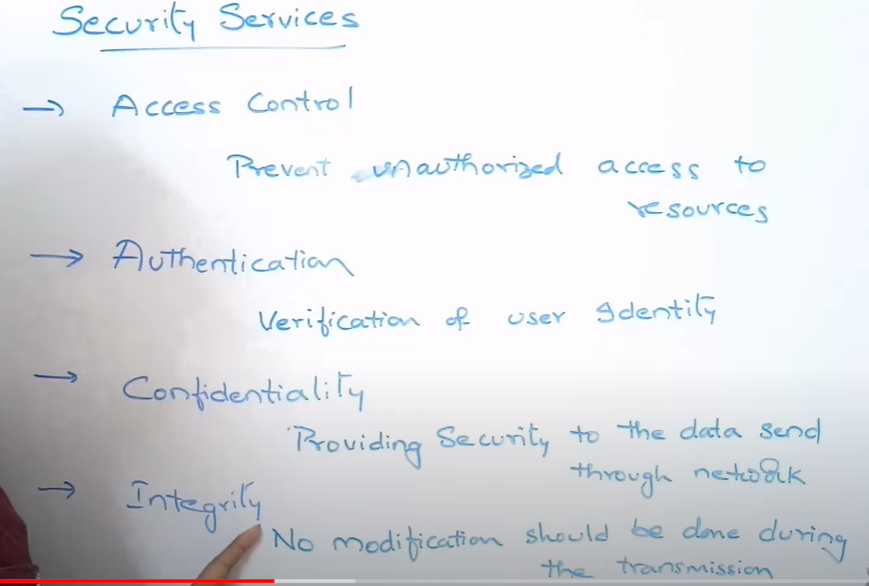 Security Services
→ Access Control
Prevent unauthorized access to
resources
→ Authentication
Verification of user Identity
→ Confidentiality
Providing Security to the data send
through network
→ Integrity
No modification should be done during
the transmission